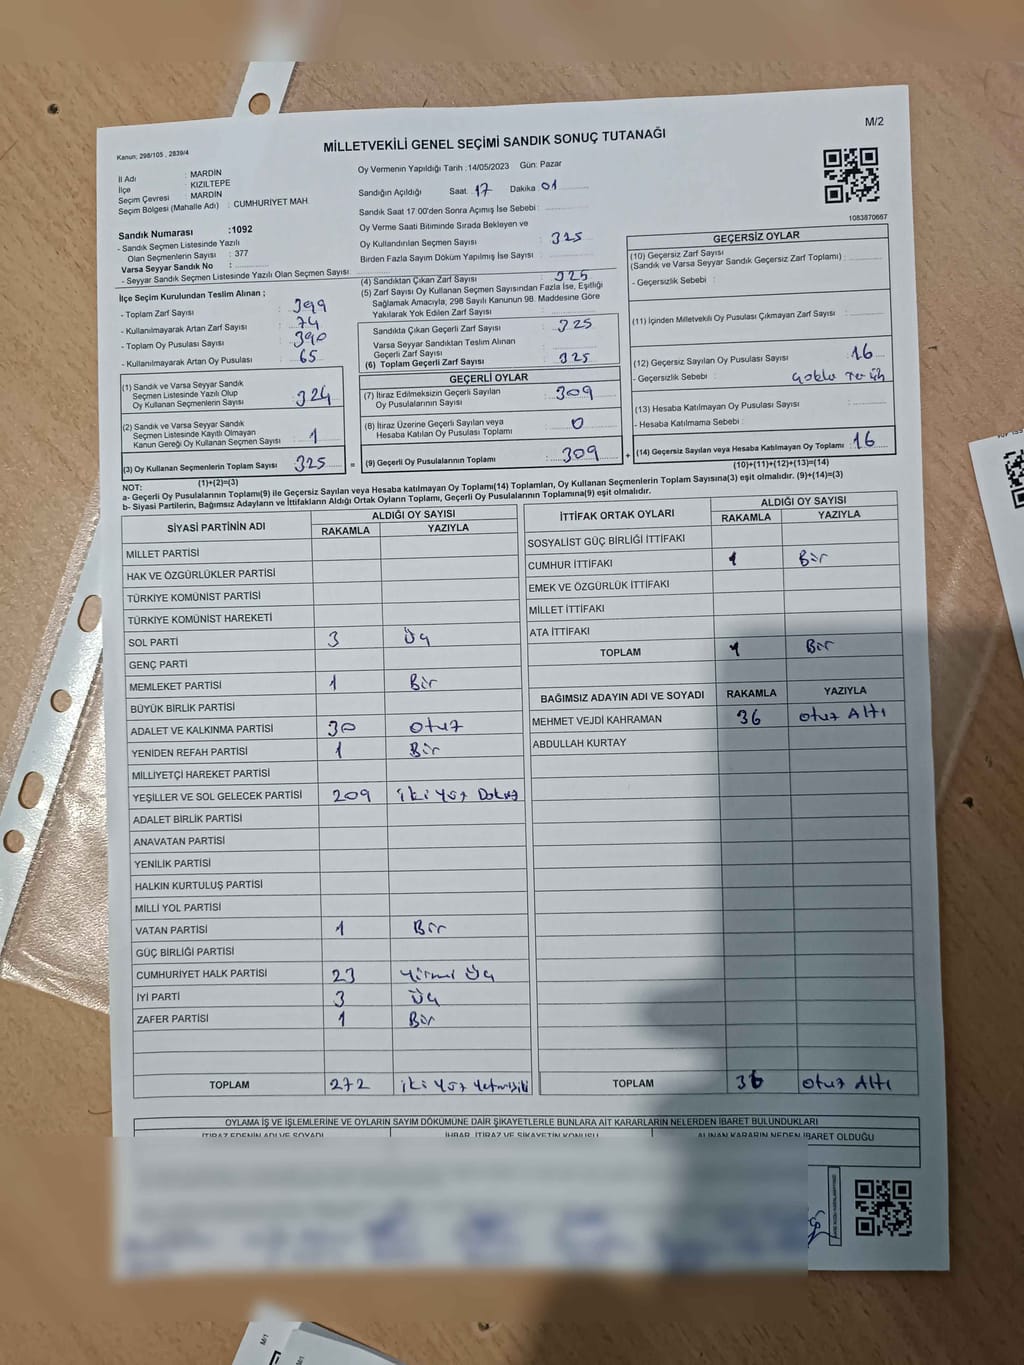 M/2
MİLLETVEKİLİ GENEL SEÇİMİ SANDIK SONUÇ TUTANAĞI
Kanun; 298/105 , 2839/4
İl Adı : MARDİN
İlçe : KIZILTEPE
Seçim Çevresi : MARDİN
Seçim Bölgesi (Mahalle Adı) : CUMHURİYET MAH
Sandık Numarası :1092
- Sandık Seçmen Listesinde Yazılı
Olan Seçmenlerin Sayısı : 377
Varsa Seyyar Sandık No :
- Seyyar Sandık Seçmen Listesinde Yazılı Olan Seçmen Sayısı
Oy Vermenin Yapıldığı Tarih :14/05/2023 Gün: Pazar
Sandığın Açıldığı Saat 17 Dakika 01
Sandık Saat 17:00'den Sonra Açımış İse Sebebi :
Oy Verme Saati Bitiminde Sırada Bekleyen ve
Oy Kullandırılan Seçmen Sayısı : 325
Birden Fazla Sayım Döküm Yapılmış İse Sayısı :
1083870667
İlçe Seçim Kurulundan Teslim Alınan ;
- Toplam Zarf Sayısı : 399
- Kullanılmayarak Artan Zarf Sayısı : 74
- Toplam Oy Pusulası Sayısı : 390
- Kullanılmayarak Artan Oy Pusulası : 65
(1) Sandık ve Varsa Seyyar Sandık
Seçmen Listesinde Yazılı Olup
Oy Kullanan Seçmenlerin Sayısı : 324
(2) Sandık ve Varsa Seyyar Sandık
Seçmen Listesinde Kayıtlı Olmayan
Kanun Gereği Oy Kullanan Seçmen Sayısı : 1
(3) Oy Kullanan Seçmenlerin Toplam Sayısı : 325
(1)+(2)=(3)
(4) Sandıktan Çıkan Zarf Sayısı : 325
(5) Zarf Sayısı Oy Kullanan Seçmen Sayısından Fazla İse, Eşitliği
Sağlamak Amacıyla, 298 Sayılı Kanunun 98. Maddesine Göre
Yakılarak Yok Edilen Zarf Sayısı :
Sandıkta Çıkan Geçerli Zarf Sayısı : 325
Varsa Seyyar Sandıktan Teslim Alınan
Geçerli Zarf Sayısı :
(6) Toplam Geçerli Zarf Sayısı : 325
GEÇERLİ OYLAR
(7) İtiraz Edilmeksizin Geçerli Sayılan
Oy Pusulalarının Sayısı : 309
(8) İtiraz Üzerine Geçerli Sayılan veya
Hesaba Katılan Oy Pusulası Toplamı : 0
= (9) Geçerli Oy Pusulalarının Toplamı : 309 +
GEÇERSİZ OYLAR
(10) Geçersiz Zarf Sayısı
(Sandık ve Varsa Seyyar Sandık Geçersiz Zarf Toplamı) :
- Geçersizlik Sebebi :
(11) İçinden Milletvekili Oy Pusulası Çıkmayan Zarf Sayısı :
(12) Geçersiz Sayılan Oy Pusulası Sayısı : 16
- Geçersizlik Sebebi :
(13) Hesaba Katılmayan Oy Pusulası Sayısı :
- Hesaba Katılmama Sebebi :
(14) Geçersiz Sayılan veya Hesaba Katılmayan Oy Toplamı : 16
(10)+(11)+(12)+(13)=(14)
NOT:
a- Geçerli Oy Pusulalarının Toplamı(9) ile Geçersiz Sayılan veya Hesaba katılmayan Oy Pusulası Toplamı(14) Toplamları, Oy Kullanan Seçmenlerin Toplam Sayısına(3) eşit olmalıdır. (9)+(14)=(3)
b- Siyasi Partilerin, Bağımsız Adayların ve İttifakların Aldığı Ortak Oyların Toplamı, Geçerli Oy Pusulalarının Toplamına(9) eşit olmalıdır.
SİYASİ PARTİNİN ADI ALDIĞI OY SAYISI
RAKAMLA YAZIYLA
MİLLET PARTİSİ
HAK VE ÖZGÜRLÜKLER PARTİSİ
TÜRKİYE KOMÜNİST PARTİSİ
TÜRKİYE KOMÜNİST HAREKETİ
SOL PARTİ 3 Üç
GENÇ PARTİ
MEMLEKET PARTİSİ 1 Bir
BÜYÜK BİRLİK PARTİSİ
ADALET VE KALKINMA PARTİSİ 30 otuz
YENİDEN REFAH PARTİSİ 1 Bir
MİLLİYETÇİ HAREKET PARTİSİ
YEŞİLLER VE SOL GELECEK PARTİSİ 209 iki yüz Dokuz
ADALET BİRLİK PARTİSİ
ANAVATAN PARTİSİ
YENİLİK PARTİSİ
HALKIN KURTULUŞ PARTİSİ
MİLLİ YOL PARTİSİ
VATAN PARTİSİ 1 Bir
GÜÇ BİRLİĞİ PARTİSİ
CUMHURİYET HALK PARTİSİ 23 Yirmi Üç
İYİ PARTİ 3 Üç
ZAFER PARTİSİ 1 Bir
TOPLAM 272 iki yüz yetmişiki
İTTİFAK ORTAK OYLARI ALDIĞI OY SAYISI
RAKAMLA YAZIYLA
SOSYALİST GÜÇ BİRLİĞİ İTTİFAKI
CUMHUR İTTİFAKI 1 Bir
EMEK VE ÖZGÜRLÜK İTTİFAKI
MİLLET İTTİFAKI
ATA İTTİFAKI
TOPLAM 1 Bir
BAĞIMSIZ ADAYIN ADI VE SOYADI RAKAMLA YAZIYLA
MEHMET VEJDİ KAHRAMAN 36 otuz Altı
ABDULLAH KURTAY
TOPLAM 36 otuz Altı
OYLAMA İŞ VE İŞLEMLERİNE VE OYLARIN SAYIM DÖKÜMÜNE DAİR ŞİKAYETLERLE BUNLARA AİT KARARLARIN NELERDEN İBARET BULUNDUKLARI
İTİRAZ EDENİN ADI VE SOYADI İHBAR, İTİRAZ VE ŞİKAYETİN KONUSU ALINAN KARARIN NEDEN İBARET OLDUĞU
M/1
M/1